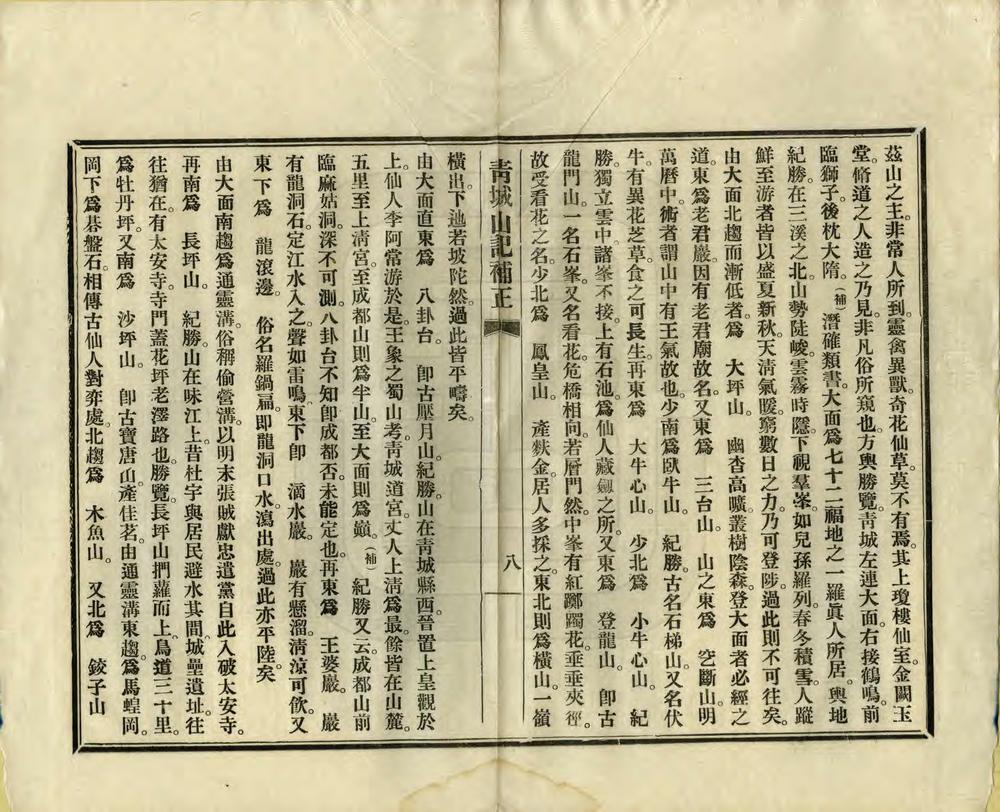 茲山之主。非常人所到。靈禽異獸。奇花仙草。莫不有焉。其上瓊樓仙室。金闕玉
堂。脩道之人造之乃見。非凡俗所窺也。方輿勝覽。靑城左連大面。右接鶴鳴。前
臨獅子。後枕大隋。（補）潛確類書。大面爲七十二福地之一。羅眞人所居。輿地
紀勝。在三溪之北。山勢陡峻。雲霧時隱。下視羣峯。如兒孫羅列。春冬積雪。人蹤
鮮至。游者皆以盛夏新秋。天淸氣暖。窮數日之力。乃可登陟。過此則不可往矣。
由大面北趨而漸低者。爲　大坪山。　幽杳高曠。叢樹陰森。登大面者必經之
道。東爲老君巖。因有老君廟。故名。又東爲　三台山。　山之東爲　空斷山。明
萬曆中。術者謂山中有王氣故也。少南爲臥牛山。　紀勝。古名石梯山。又名伏
牛。有異花芝草。食之可長生。再東爲　大牛心山。　少北爲　小牛心山。　紀
勝。獨立雲中。諸峯不接。上有石池。爲仙人藏劒之所。又東爲　登龍山。　卽古
龍門山。一名石峯。又名看花。危橋相向。若層門然。中峯有紅躑躅花。垂垂夾徑。
故受看花之名。少北爲　鳳皇山。　產麩金。居人多採之。東北則爲橫山。一嶺
靑城山記補正　八
橫出。下迆若坡陀然。過此皆平疇矣。
由大面直東爲　八卦台。　卽古壓月山。紀勝。山在靑城縣西。晉置上皇觀於
上。仙人李阿常游於是。王象之蜀山考。靑城道宮。丈人上淸爲最。餘皆在山麓。
五里至上淸宮。至成都山則爲半山。至大面則爲巓。（補）紀勝又云。成都山前
臨麻姑洞。深不可測。八卦台不知卽成都否。未能定也。再東爲　王婆巖。　巖
有龍洞石定江水入之。聲如雷鳴。東下卽　滴水巖。　巖有懸溜。淸涼可飮。又
東下爲　龍滾邊。　俗名羅鍋匾。卽龍洞口水瀉出處。過此亦平陸矣。
由大面南趨爲通靈溝。俗稱偷營溝。以明末張賊獻忠遣黨自此入破太安寺。
再南爲　長坪山。　紀勝。山在味江上。昔杜宇與居民避水其間。城壘遺址。往
往猶在。有太安寺。寺門蓋花坪老澤路也。勝覽。長坪山捫蘿而上。鳥道三十里。
爲牡丹坪。又南爲　沙坪山。　卽古寶唐山。產佳茗。由通靈溝東趨。爲馬蝗岡。
岡下爲棊盤石。相傳古仙人對弈處。北趨爲　木魚山。　又北爲　鋑子山